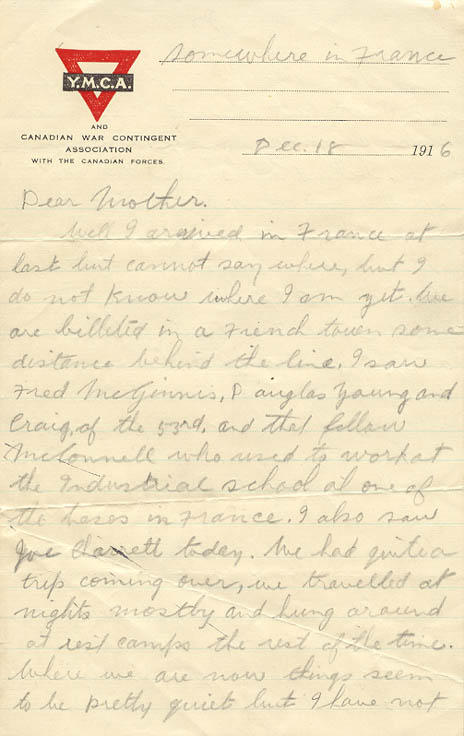 somewhere in France
Y.M.C.A.
AND
CANADIAN WAR CONTINGENT
ASSOCIATION
WITH THE CANADIAN FORCES.
Dec. 18 1916
Dear Mother.
Well I arrived in France at
last but cannot say where, but I
do not know where I am yet. We
are billeted in a French town some
distance behind the line. I saw
Fred McGinnis, Douglas Young and
Craig, of the 53rd. and that fellow
McConnell who used to work at
the Industrial school at one of
the bases in France. I also saw
Joe today. We had quite a
trip coming over, we travelled at
nights mostly and hung around
at rest camps the rest of the time.
Where we are now things seem
to be pretty quiet but I have not